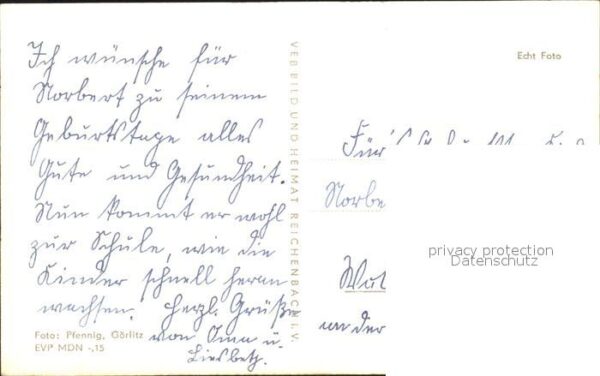 Ich wünsche für
Norbert zu seinem
Geburtstage alles
Gute und Gesundheit.
Nun kommt er wohl
zur Schule, wie die
Kinder schnell heran
wachsen. Herzl. Grüße
von Oma u.
Liesbeth.
Foto: Pfennig, Görlitz
EVP MDN -,15
VEB BILD UND HEIMAT REICHENBACH I. V.
Echt Foto
Für
Norbe
an der
privacy protection
Datenschutz